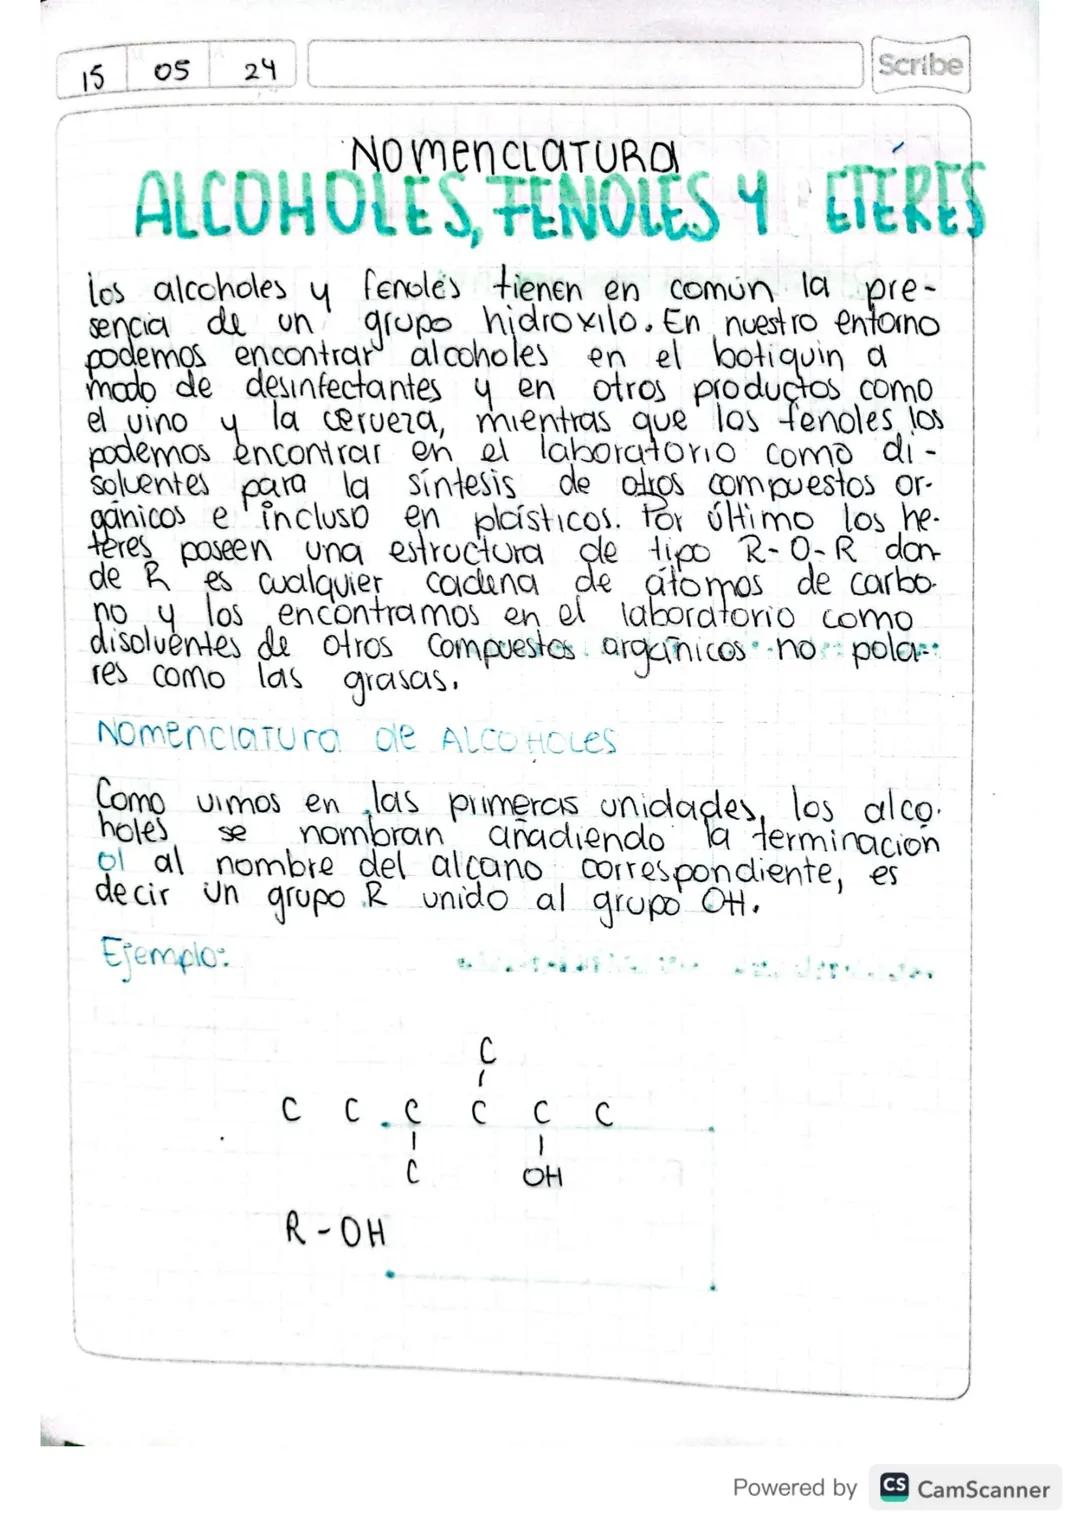 15 05 24
Scribe
Nomenclatura
ALCOHOLES, FENOLES Y ÉTERES
Los alcoholes y fenoles tienen en común la pre-
sencia de un grupo hidroxilo. En nuestro entorno
podemos encontrar alcoholes en el botiquin a
modo de desinfectantes y en otros productos como
el vino y la cerveza, mientras que los fenoles los
podemos encontrar en el laboratorio como di-
solventes para la síntesis de otros compuestos or-
gánicos e incluso en plásticos. Por último los he-
teres poseen una estructura de tipo R-O-R don-
de R es cualquier cadena de átomos de carbo-
no y los encontramos en el laboratorio como
disolventes de otros compuestos orgánicos no pola-
res como las grasas.
Nomenclatura de ALCOHOLES
Como vimos en las primeras unidades, los alco-
holes se nombran añadiendo la terminación
ol al nombre del alcano correspondiente, es
decir un grupo R unido al grupo OH.
Ejemplo:
C
C C C C C C
C OH
R-OH
Powered by CS CamScanner